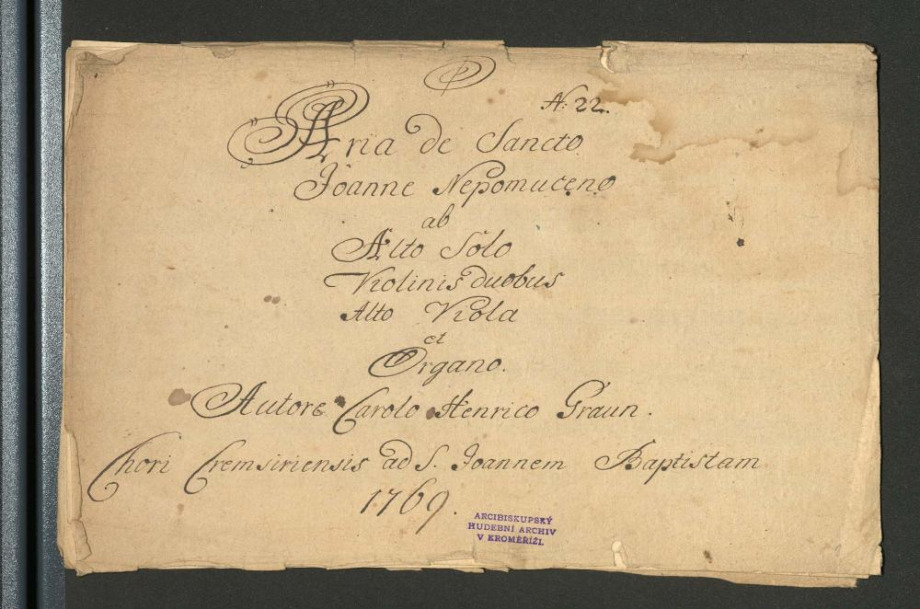 N: 22.
Aria de Sancto
Joanne Nepomuceno
ab
Alto Solo
Violinis duobus
Alto Viola
et
Organo.
Autore Carolo Henrico Graun.
Chori Cremsiriensis ad S. Joannem Baptistam
1769.
ARCIBISKUPSKÝ
HUDEBNÍ ARCHIV
V KROMĚŘÍŽI.